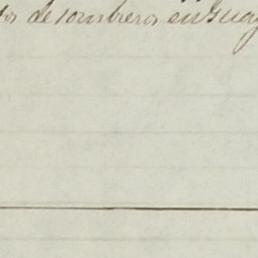 de sombreros en Guay